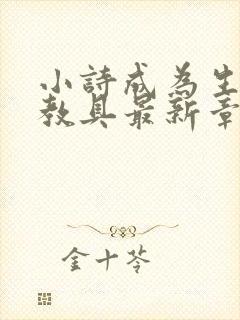 小詩成為生
教具最新章
金十苓